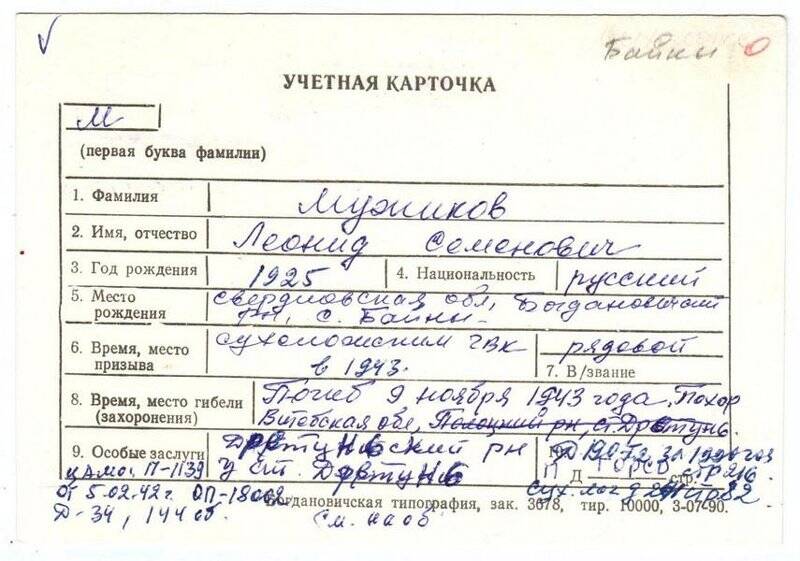 Байны
УЧЕТНАЯ КАРТОЧКА
М
(первая буква фамилии)
1. Фамилия Мужиков
2. Имя, отчество Леонид Семенович
3. Год рождения 1925 4. Национальность русский
5. Место рождения свердловская обл, Богдановичский
рн, с. Байны
6. Время, место призыва сухоложским гвк
в 1943.
рядовой
7. В/звание
8. Время, место гибели (захоронения) Погиб 9 ноября 1943 года. Похор
Витебская обл, Полоцкий рн, ст. Дретунь.
9. Особые заслуги Дретуньский рн
у ст. Дретунь
П Д стр. 216
ЦАМО. П-1139
от 5.02.42г. ОП-18002
Д-34, 144 об
Сух. лог д стр 82
Богдановичская типография, зак. 3678, тир. 10000, 3-07-90.
См. на об